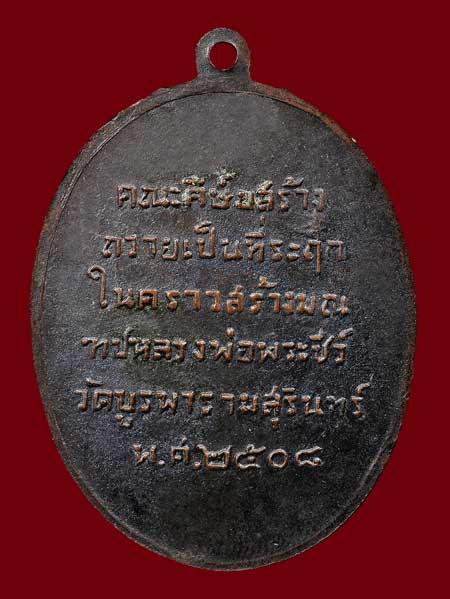 คณะศิษย์สร้าง
ถวายเป็นที่ระฦก
ในคราวสร้างมณ
ฑปหลวงพ่อพระชีว์
วัดบูรพารามสุรินทร์
พ.ศ.๒๕๐๘